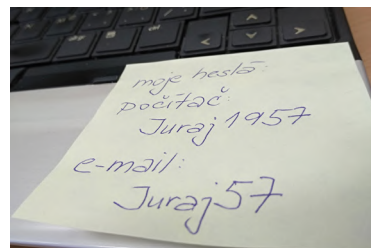 moje heslá:
počítač:
Juraj1957
e-mail:
Juraj57